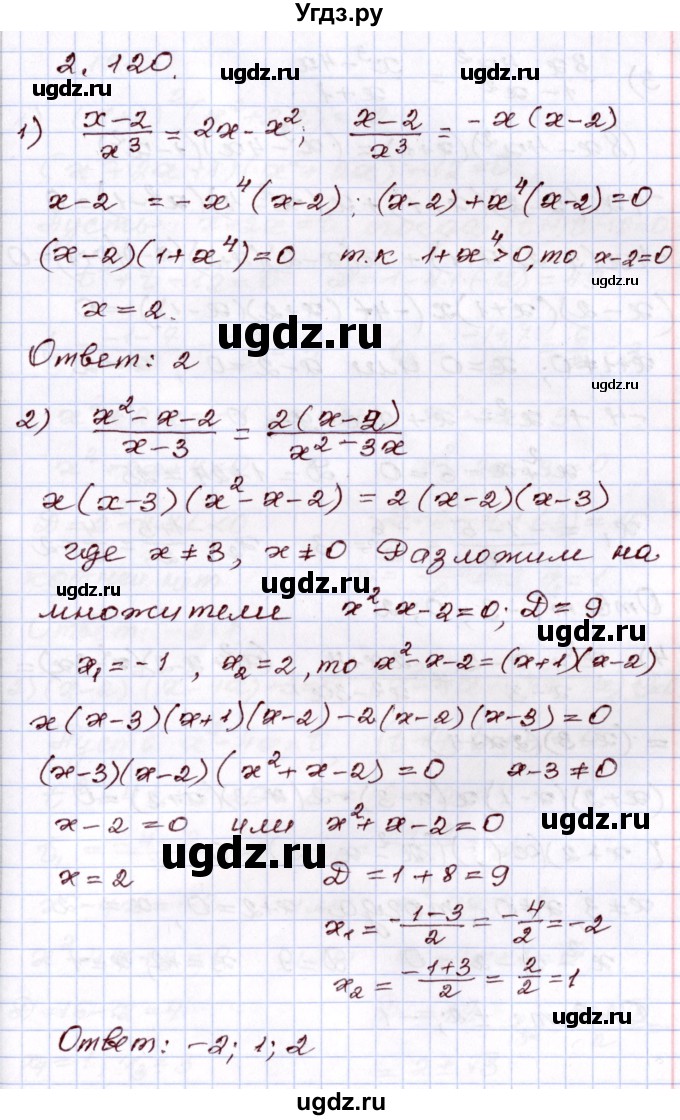 Угдз.ру
2.120.
1) (x-2)/x³ = 2x-x²; (x-2)/x³ = -x(x-2)
x-2 = -x⁴(x-2); (x-2)+x⁴(x-2)=0
(x-2)(1+x⁴)=0 т.к 1+x⁴>0, то x-2=0
x=2.
Ответ: 2
2) (x²-x-2)/(x-3) = 2(x-2)/(x²-3x)
x(x-3)(x²-x-2)=2(x-2)(x-3)
где x≠3, x≠0 Разложим на
множители x²-x-2=0; D=9
x₁=-1, x₂=2, то x²-x-2=(x+1)(x-2)
x(x-3)(x+1)(x-2)-2(x-2)(x-3)=0
(x-3)(x-2)(x²+x-2)=0 x-3≠0
x-2=0 или x²+x-2=0
x=2 D=1+8=9
x₁=(-1-3)/2=-4/2=-2
x₂=(-1+3)/2=2/2=1
Ответ: -2; 1; 2
ugdz.ru
ugdz.ru
ugdz.ru
ugdz.ru
ugdz.ru
ugdz.ru
ugdz.ru
ugdz.ru
ugdz.ru
ugdz.ru
ugdz.ru
ugdz.ru
ugdz.ru
ugdz.ru